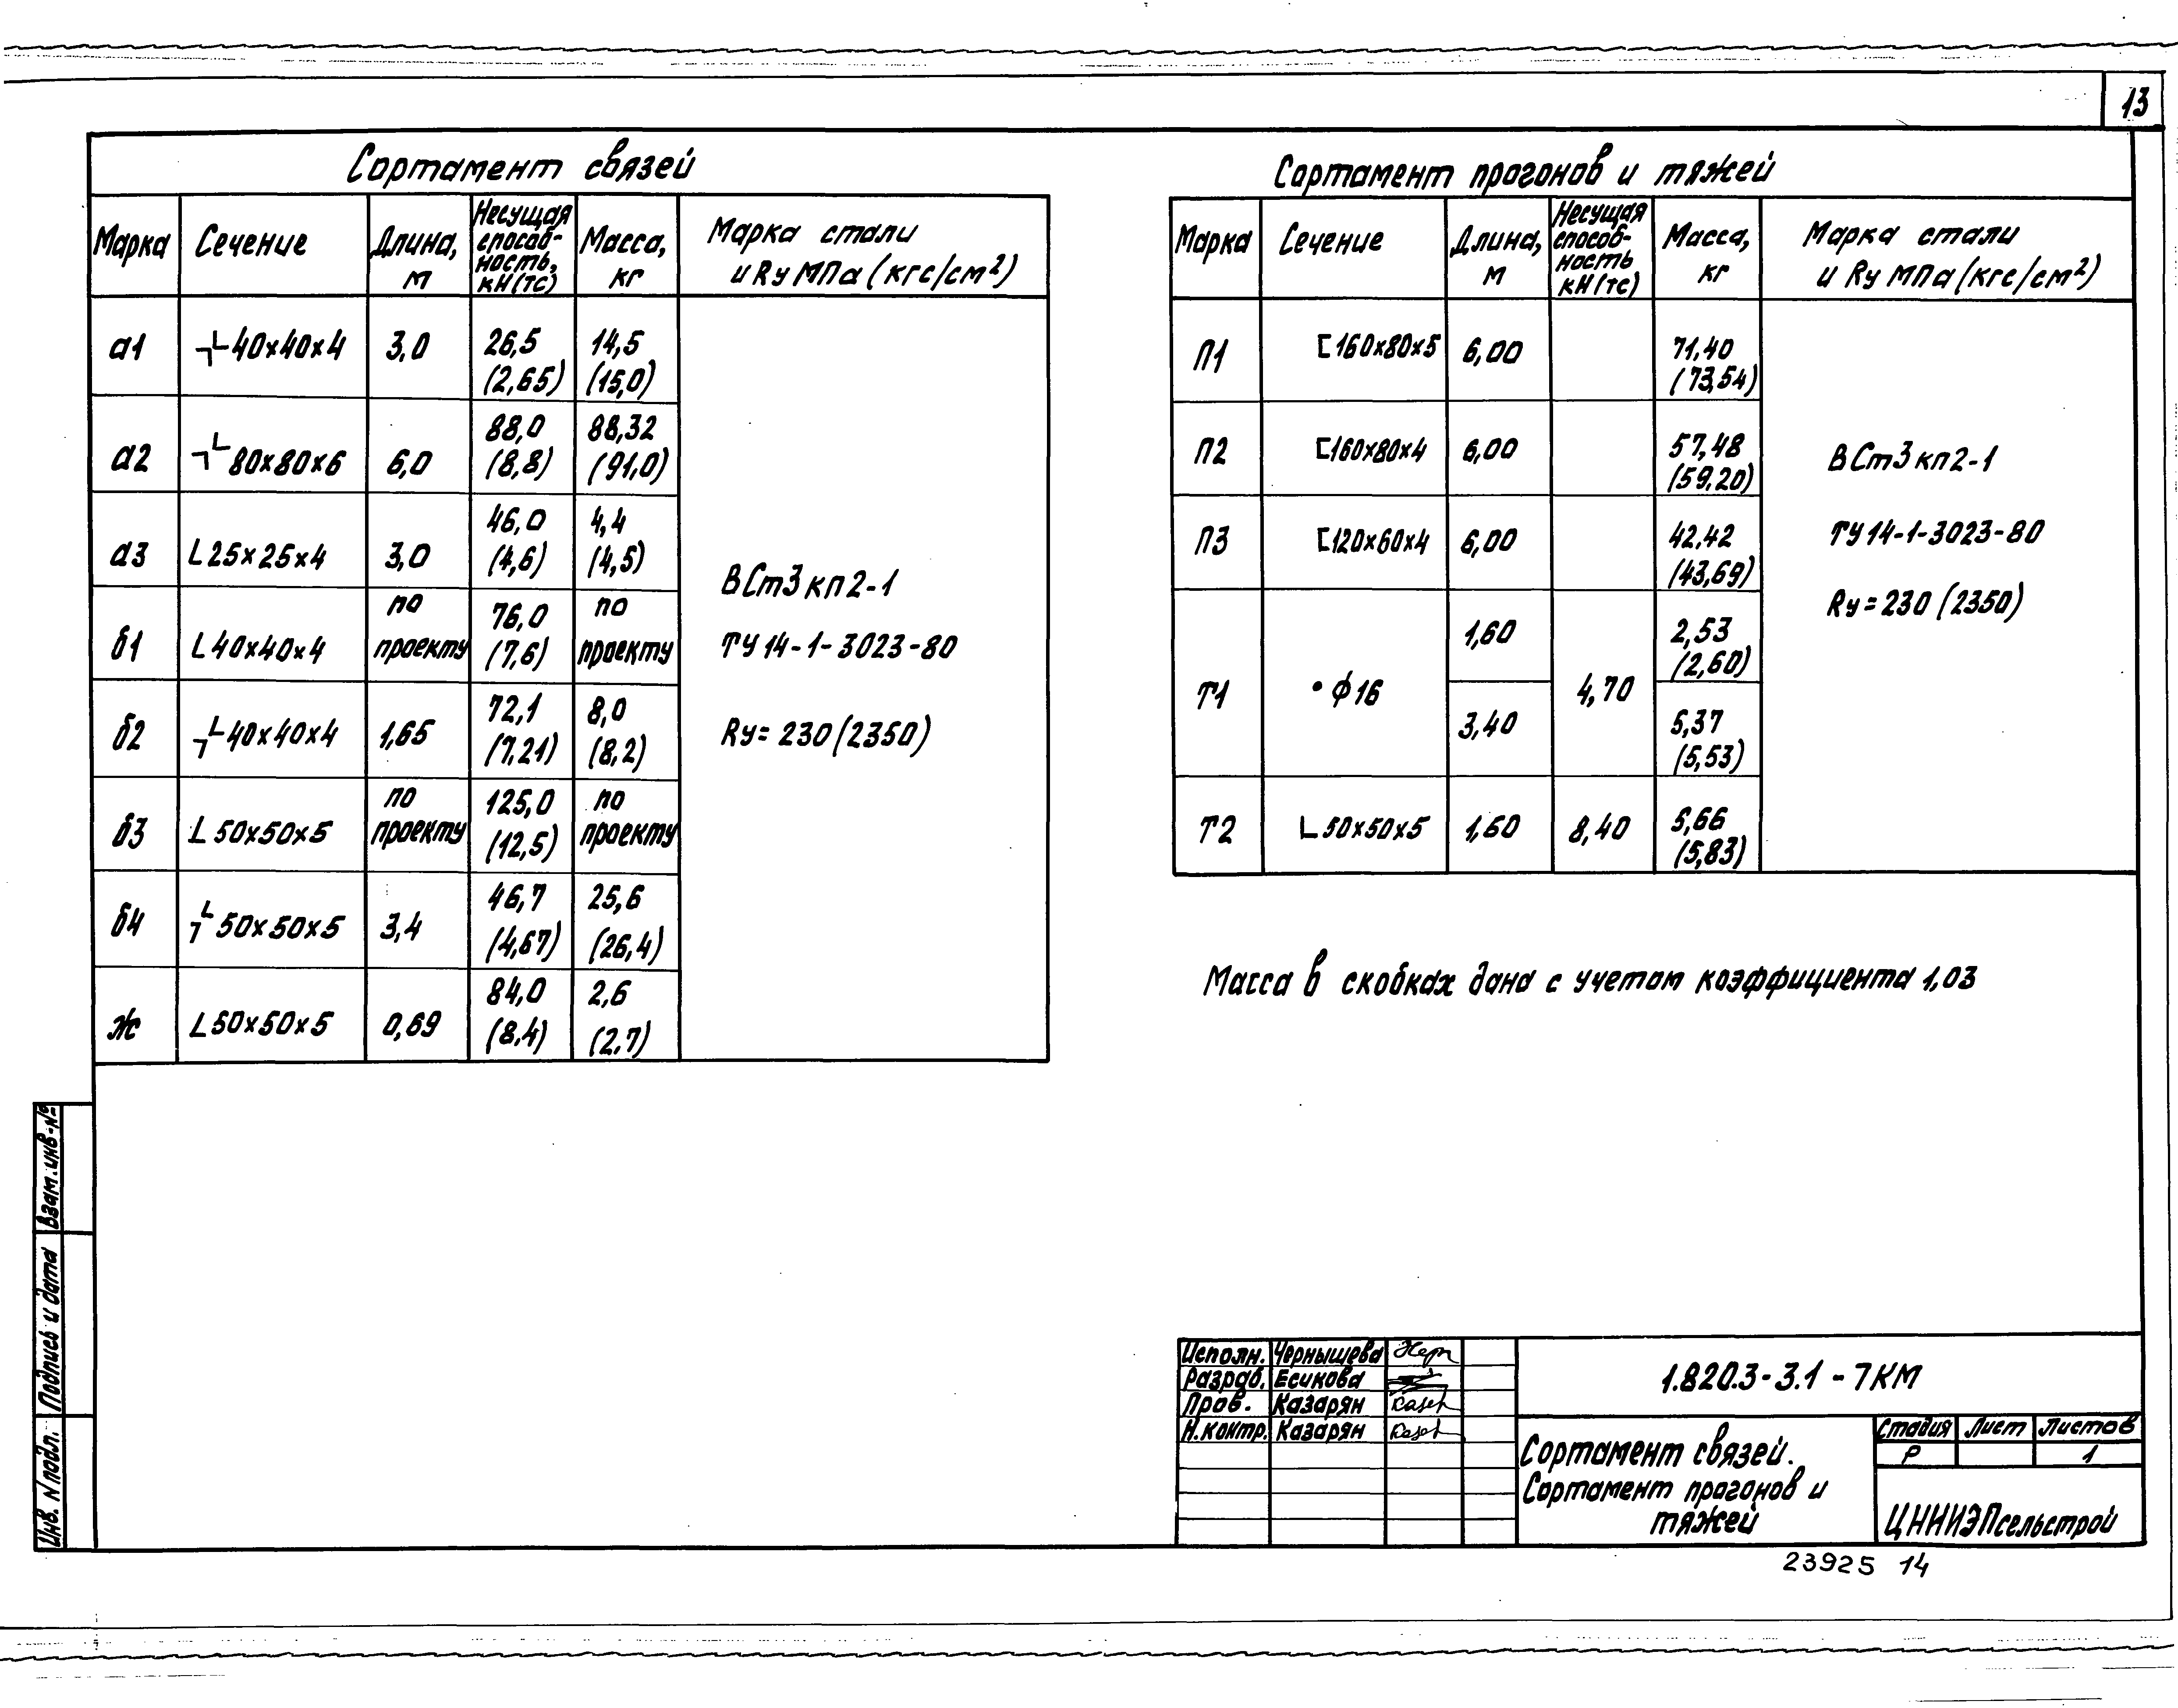 13
Сортамент связей
Марка Сечение Длина, м Несущая способ-ность, кН(тс) Масса, кг Марка стали и Rу МПа (кгс/см²)
а1 40×40×4 3,0 26,5 (2,65) 14,5 (15,0)
а2 80×80×6 6,0 88,0 (8,8) 88,32 (91,0)
а3 L25×25×4 3,0 46,0 (4,6) 4,4 (4,5)
б1 L40×40×4 по проекту 76,0 (7,6) по проекту
б2 40×40×4 1,65 72,1 (7,21) 8,0 (8,2)
б3 L50×50×5 по проекту 125,0 (12,5) по проекту
б4 50×50×5 3,4 46,7 (4,67) 25,6 (26,4)
ж L50×50×5 0,69 84,0 (8,4) 2,6 (2,7)
ВСт3кп2-1
ТУ14-1-3023-80
Rу=230(2350)
Сортамент прогонов и тяжей
Марка Сечение Длина, м Несущая способ-ность кН(тс) Масса, кг Марка стали и Rу МПа (кгс/см²)
П1 [160×80×5 6,00 71,40 (73,54)
П2 [160×80×4 6,00 57,48 (59,20)
П3 [120×60×4 6,00 42,42 (43,69)
Т1 • ϕ16 1,60 4,70 2,53 (2,60)
3,40 5,37 (5,53)
Т2 L50×50×5 1,60 8,40 5,66 (5,83)
ВСт3кп2-1
ТУ14-1-3023-80
Rу=230(2350)
Масса в скобках дана с учетом коэффициента 1,03
Взам.инв-№
Подпись и дата
Инв. N подл.
Исполн. Чернышева
Разраб. Есикова
Пров. Казарян
Н.контр. Казарян
1.820.3-3.1-7КМ
Сортамент связей.
Сортамент прогонов и
тяжей
Стадия Лист Листов
Р 1
ЦНИИЭПсельстрой
23925 14